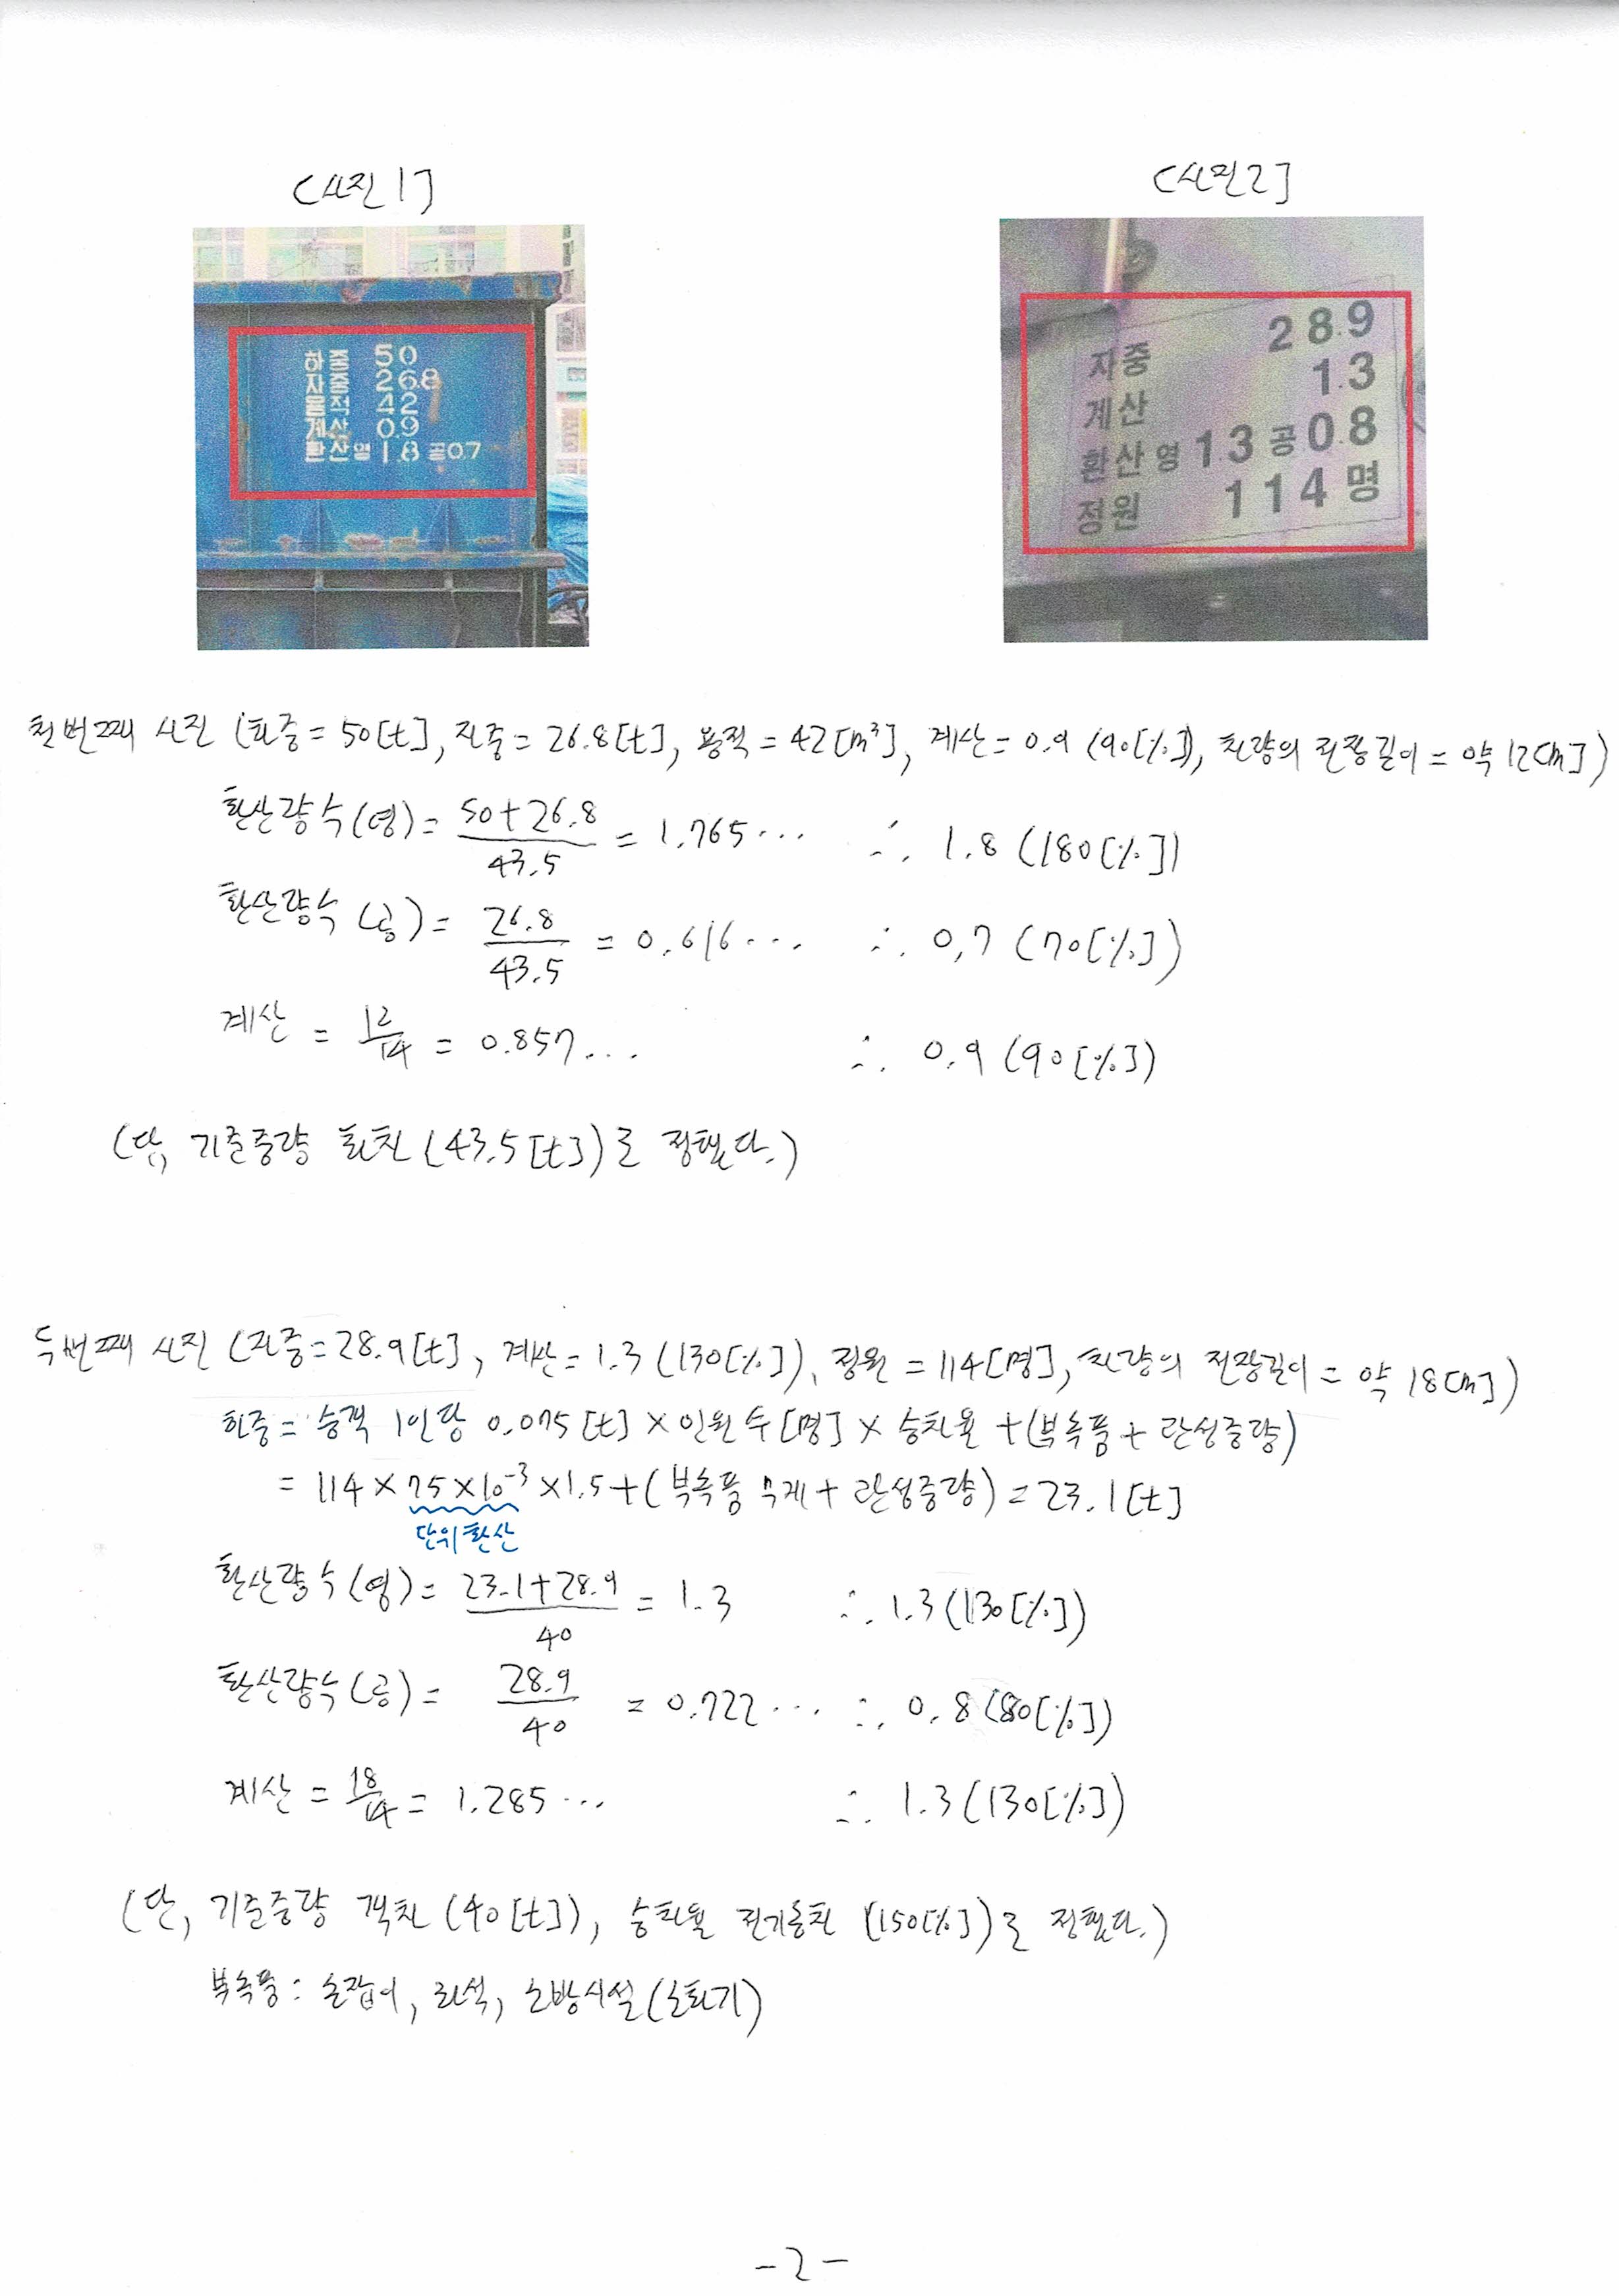 [사진 1]
[사진 2]
하중 50
자중 26.8
용적 42
계산 0.9
환산 영 1.8 공 0.7
자중 28.9
계산 1.3
환산 영 1.3 공 0.8
정원 114 명
첫번째 사진 (하중 = 50[t], 자중 = 26.8[t], 용적 = 42[m³], 계산 = 0.9 (90[%]), 차량의 전장길이 = 약 12[m])
환산량수(영) = \frac{50+26.8}{43.5} = 1.765··· ∴ 1.8 (180[%])
환산량수 (공) = \frac{26.8}{43.5} = 0.616··· ∴ 0.7 (70[%])
계산 = \frac{12}{14} = 0.857... ∴ 0.9 (90[%])
(단, 기준중량 화차 (43.5[t])로 정했다.)
두번째 사진 (자중 = 28.9[t], 계산 = 1.3 (130[%]), 정원 = 114[명], 차량의 전장길이 = 약 18[m])
하중 = 승객 1인당 0.075[t] × 인원수[명] × 승차율 + (부속품 + 관성중량)
= 114 × 75×10⁻³ × 1.5 + (부속품 무게 + 관성중량) = 23.1[t]
단위환산
환산량수(영) = \frac{23.1+28.9}{40} = 1.3 ∴ 1.3 (130[%])
환산량수(공) = \frac{28.9}{40} = 0.722··· ∴ 0.8 (80[%])
계산 = \frac{18}{14} = 1.285··· ∴ 1.3 (130[%])
(단, 기준중량 객차 (40[t]), 승차율 전기동차 (150[%])로 정했다.)
부속품 : 손잡이, 좌석, 소방시설(소화기)
-2-